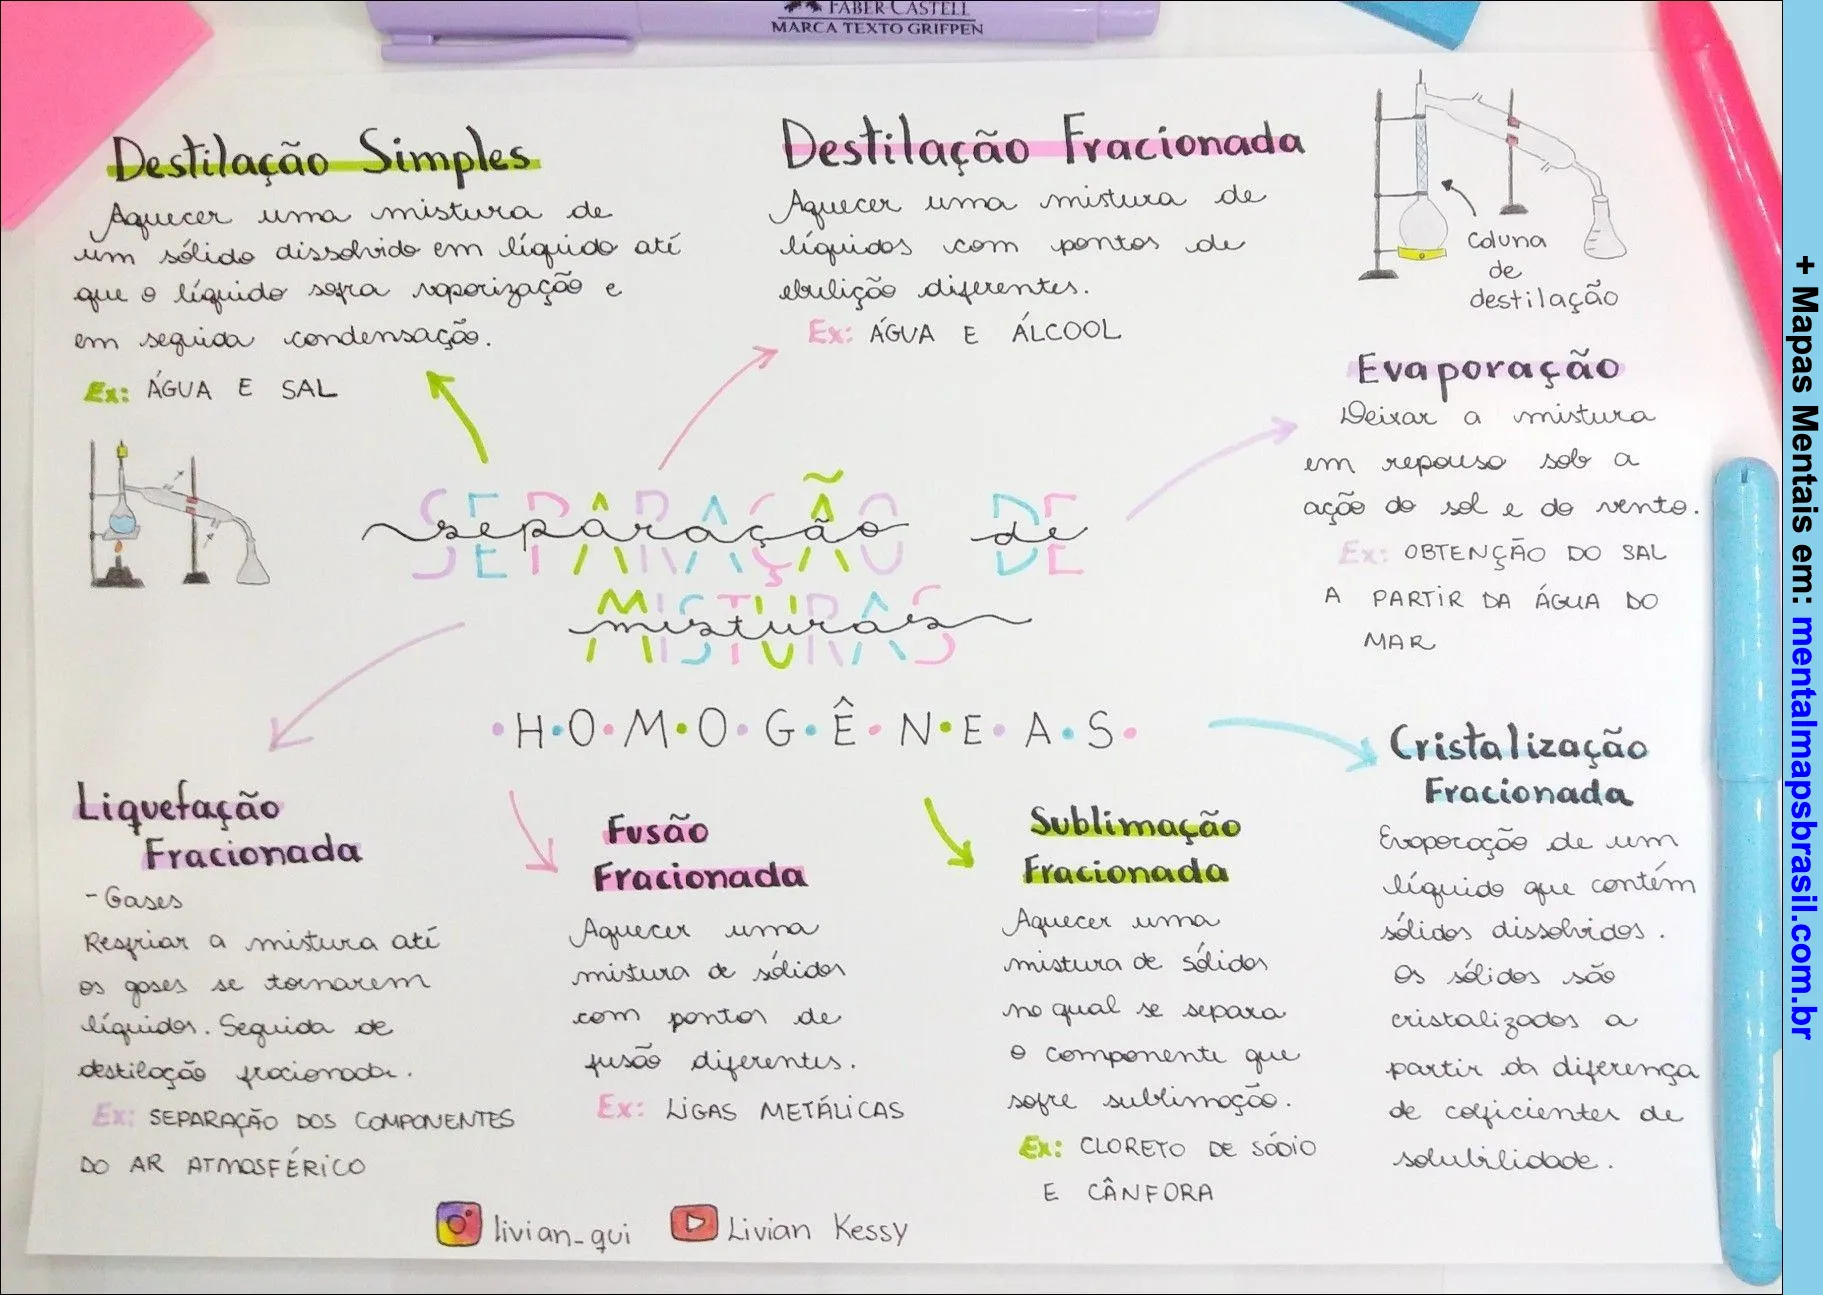 FABER-CASTELL
MARCA TEXTO GRIFPEN
Destilação Simples
Aquecer uma mistura de
um sólido dissolvido em líquido até
que o líquido sofra vaporização e
em seguida condensação.
Ex: ÁGUA E SAL
Destilação Fracionada
Aquecer uma mistura de
líquidos com pontos de
ebulição diferentes.
Ex: ÁGUA E ÁLCOOL
Coluna
de
destilação
Evaporação
Deixar a mistura
em repouso sob a
ação do sol e do vento.
Ex: OBTENÇÃO DO SAL
A PARTIR DA ÁGUA DO
MAR
SEPARAÇÃO DE
separação de
MISTURAS
misturas
•H•O•M•O•G•Ê•N•E•A•S•
Liquefação
Fracionada
- Gases
Resfriar a mistura até
os gases se tornarem
líquidos. Seguida de
destilação fracionada.
Ex: SEPARAÇÃO DOS COMPONENTES
DO AR ATMOSFÉRICO
Fusão
Fracionada
Aquecer uma
mistura de sólidos
com pontos de
fusão diferentes.
Ex: LIGAS METÁLICAS
Sublimação
Fracionada
Aquecer uma
mistura de sólidos
no qual se separa
o componente que
sofre sublimação.
Ex: CLORETO DE SÓDIO
E CÂNFORA
Cristalização
Fracionada
Evaporação de um
líquido que contém
sólidos dissolvidos.
Os sólidos são
cristalizados a
partir da diferença
de coeficientes de
solubilidade.
livian_qui
Livian Kessy
+ Mapas Mentais em: mentalmapsbrasil.com.br